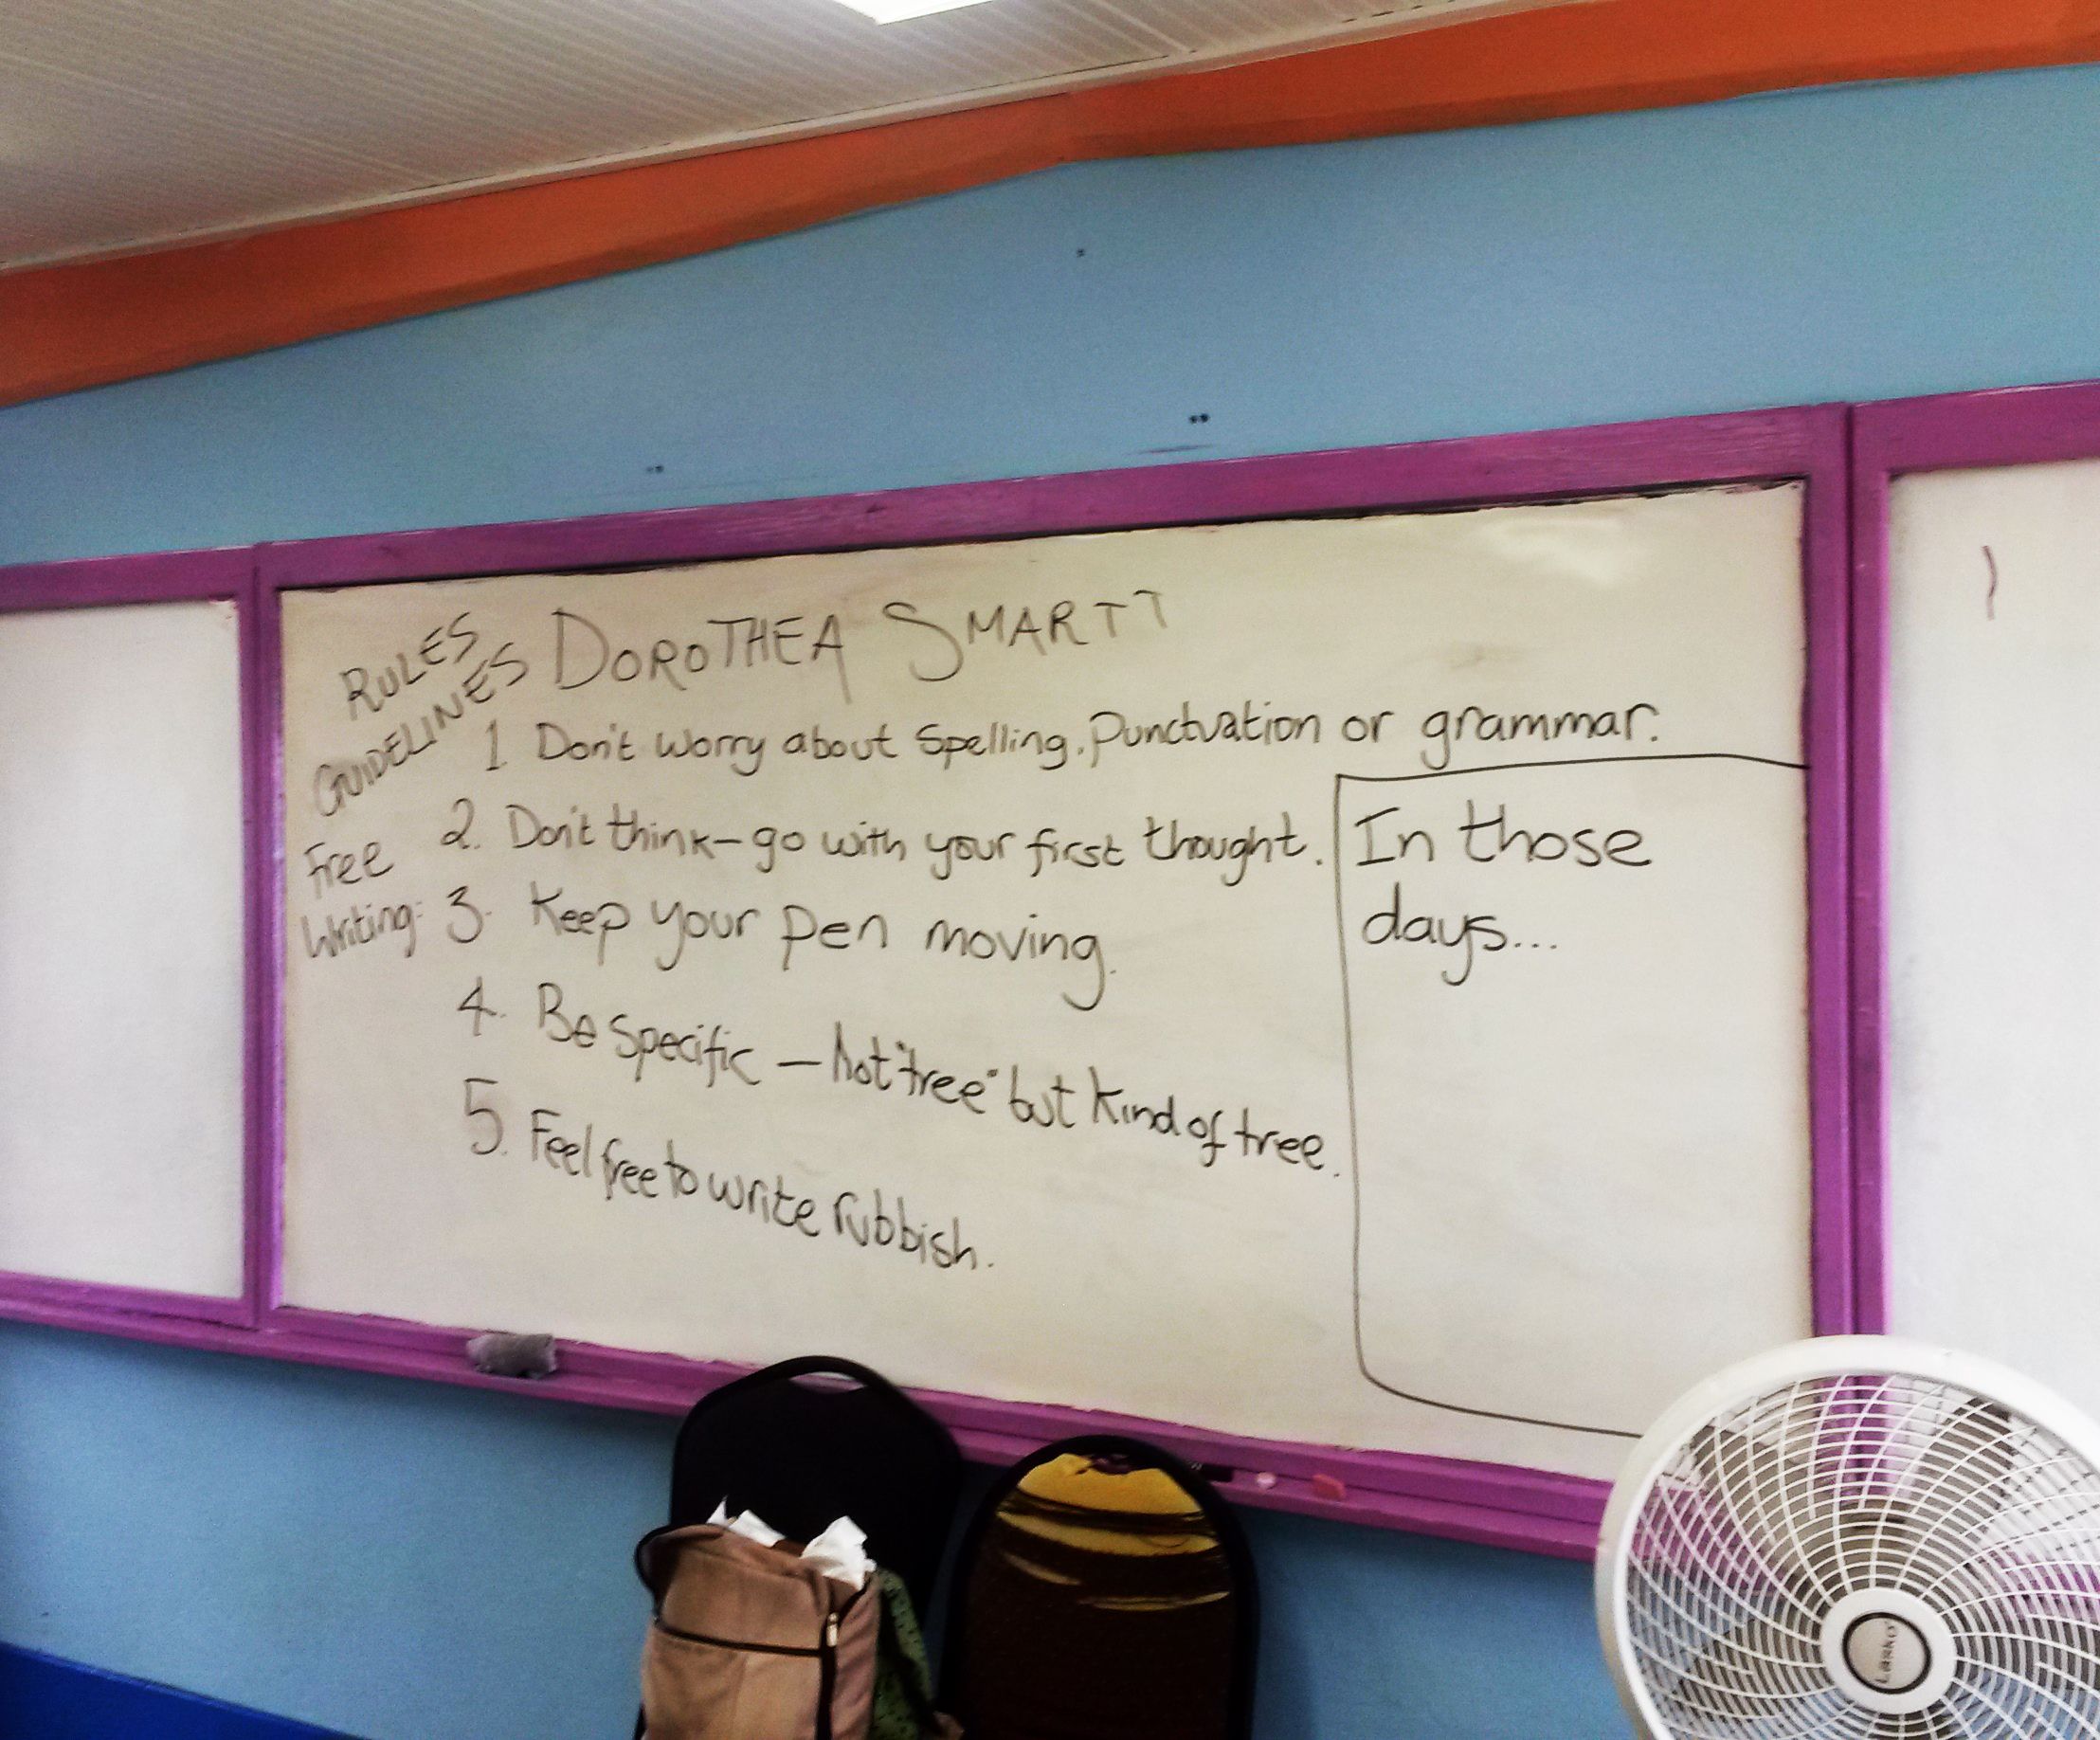 RULES
GUIDELINES
DOROTHEA SMARTT
1 Don't worry about Spelling, Punctuation or grammar.
Free
Writing:
2. Don't think - go with your first thought.
3. Keep your pen moving.
4. Be specific — not "tree" but kind of tree.
5. Feel free to write rubbish.
In those
days...
Lasko